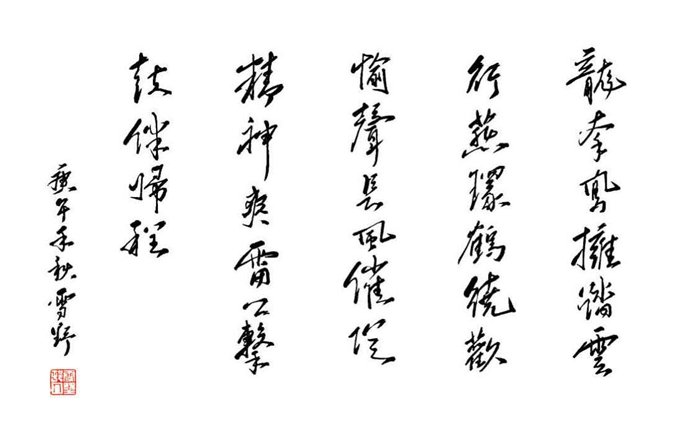 龍牵鳳擁踏雲
行燕環鶴繞歡
愉聲長風催
精神爽雷公擊
鼓伴歸程
午年秋雪